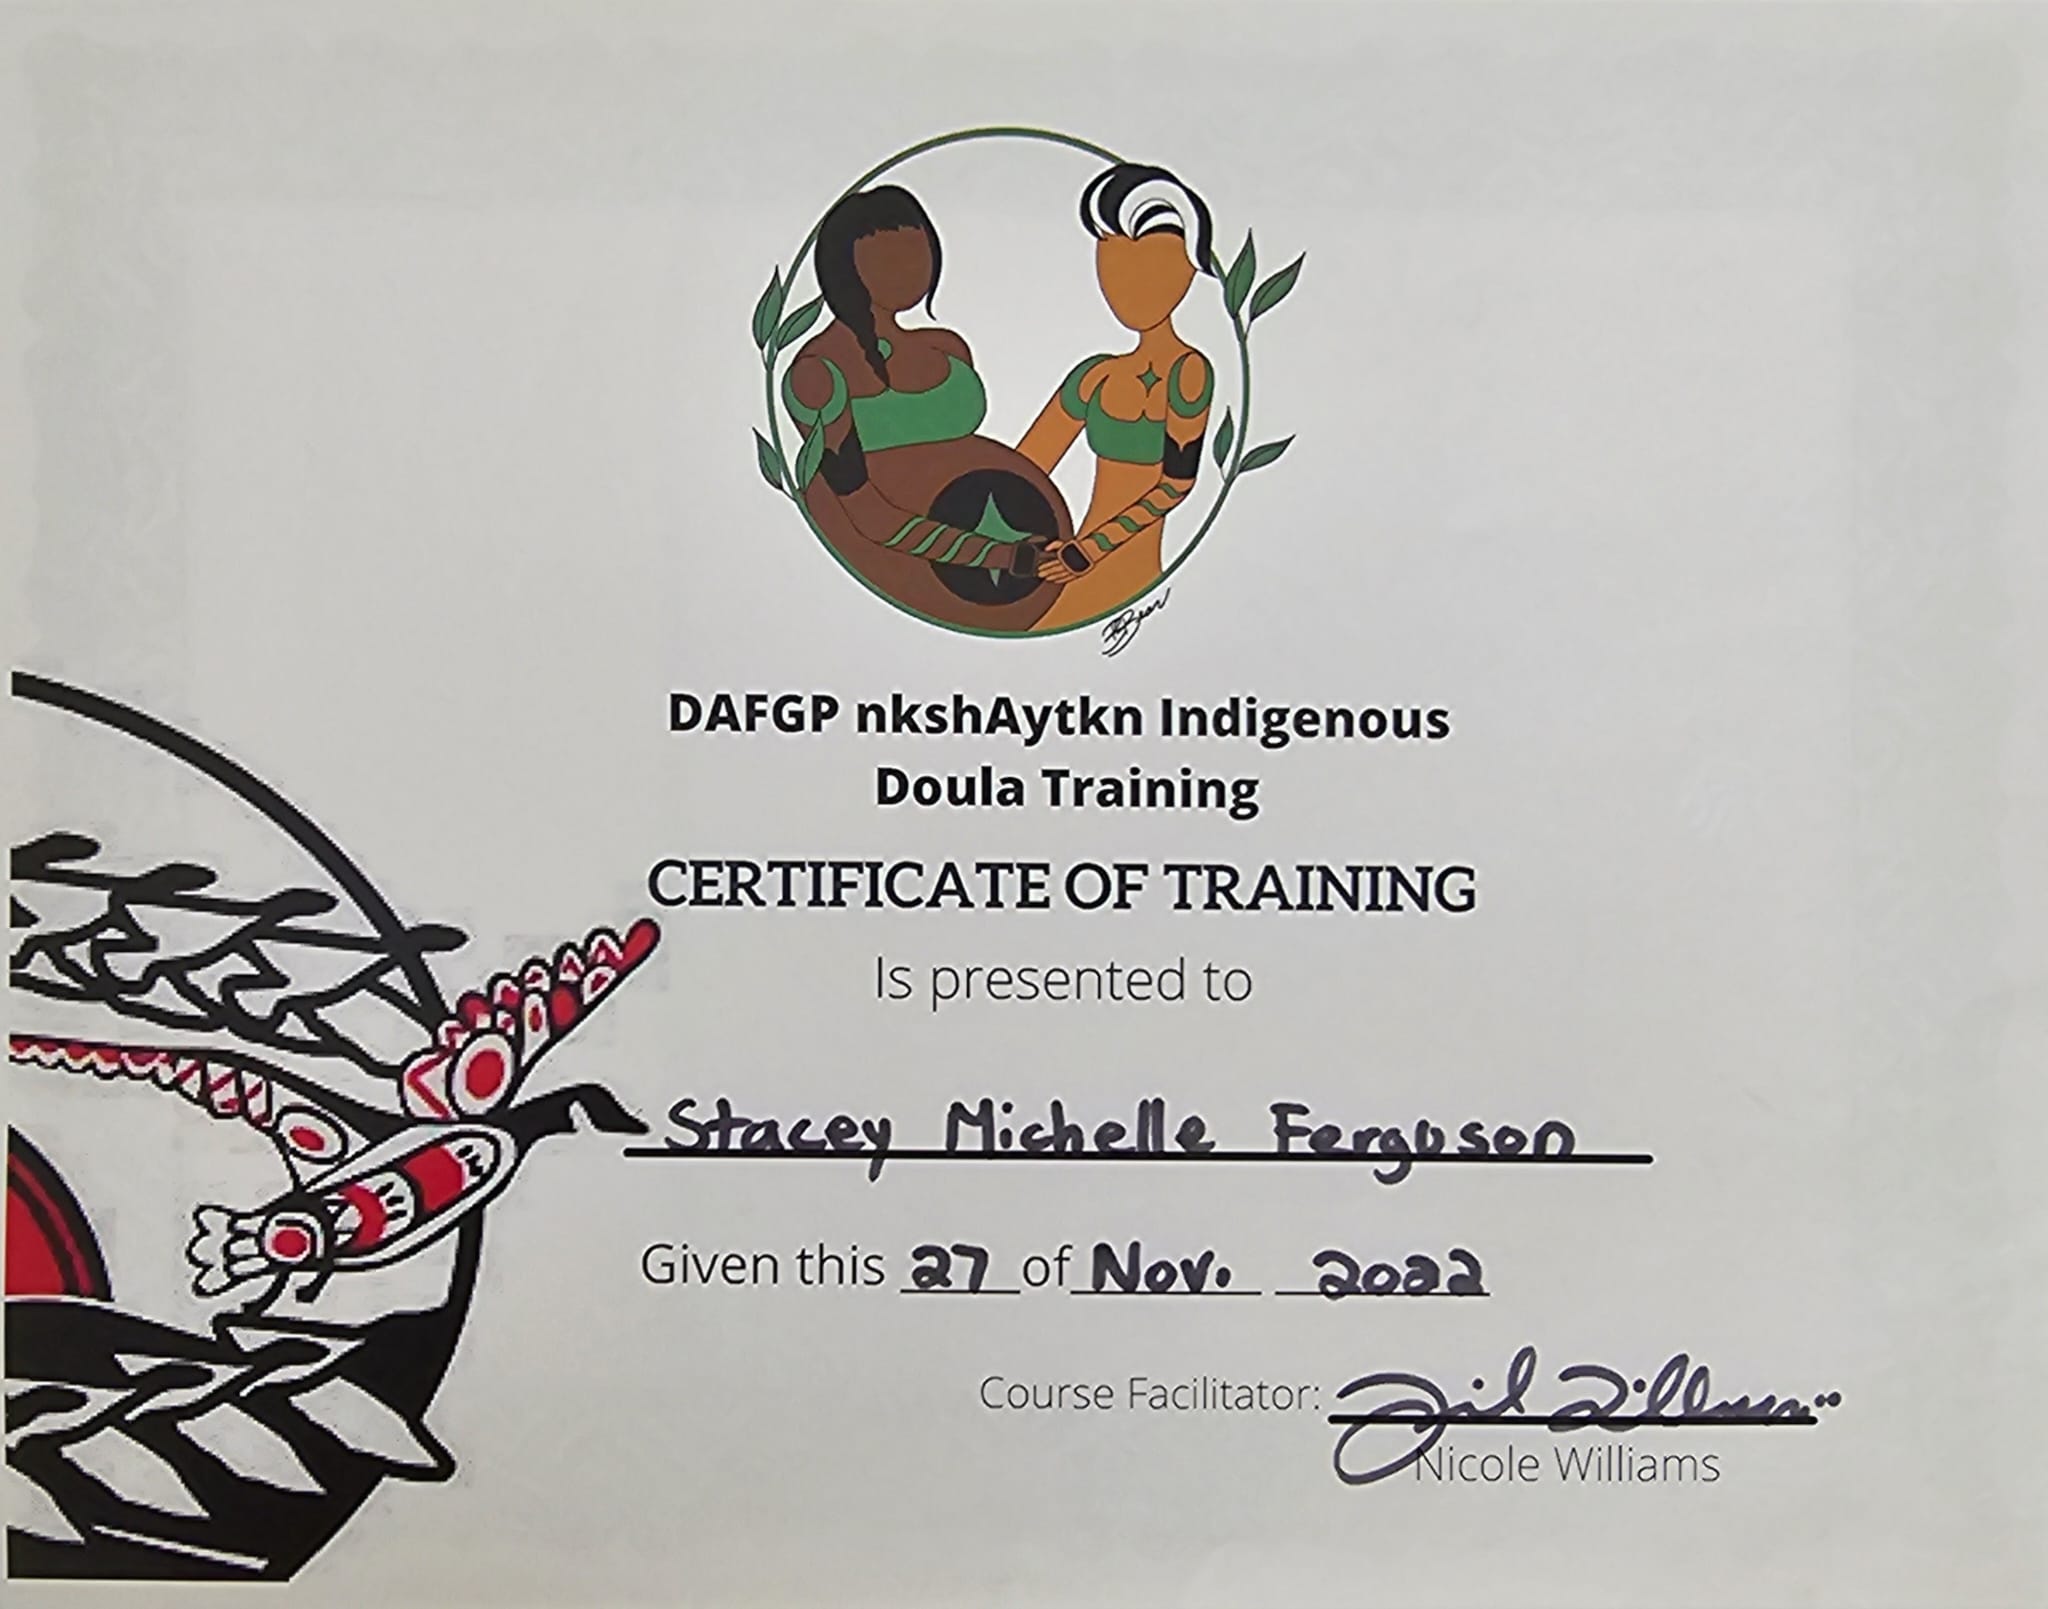 DAFGP nkshAytkn Indigenous
Doula Training
CERTIFICATE OF TRAINING
Is presented to
Stacey Michelle Ferguson
Given this 27 of Nov. 2022
Course Facilitator:
Nicole Williams